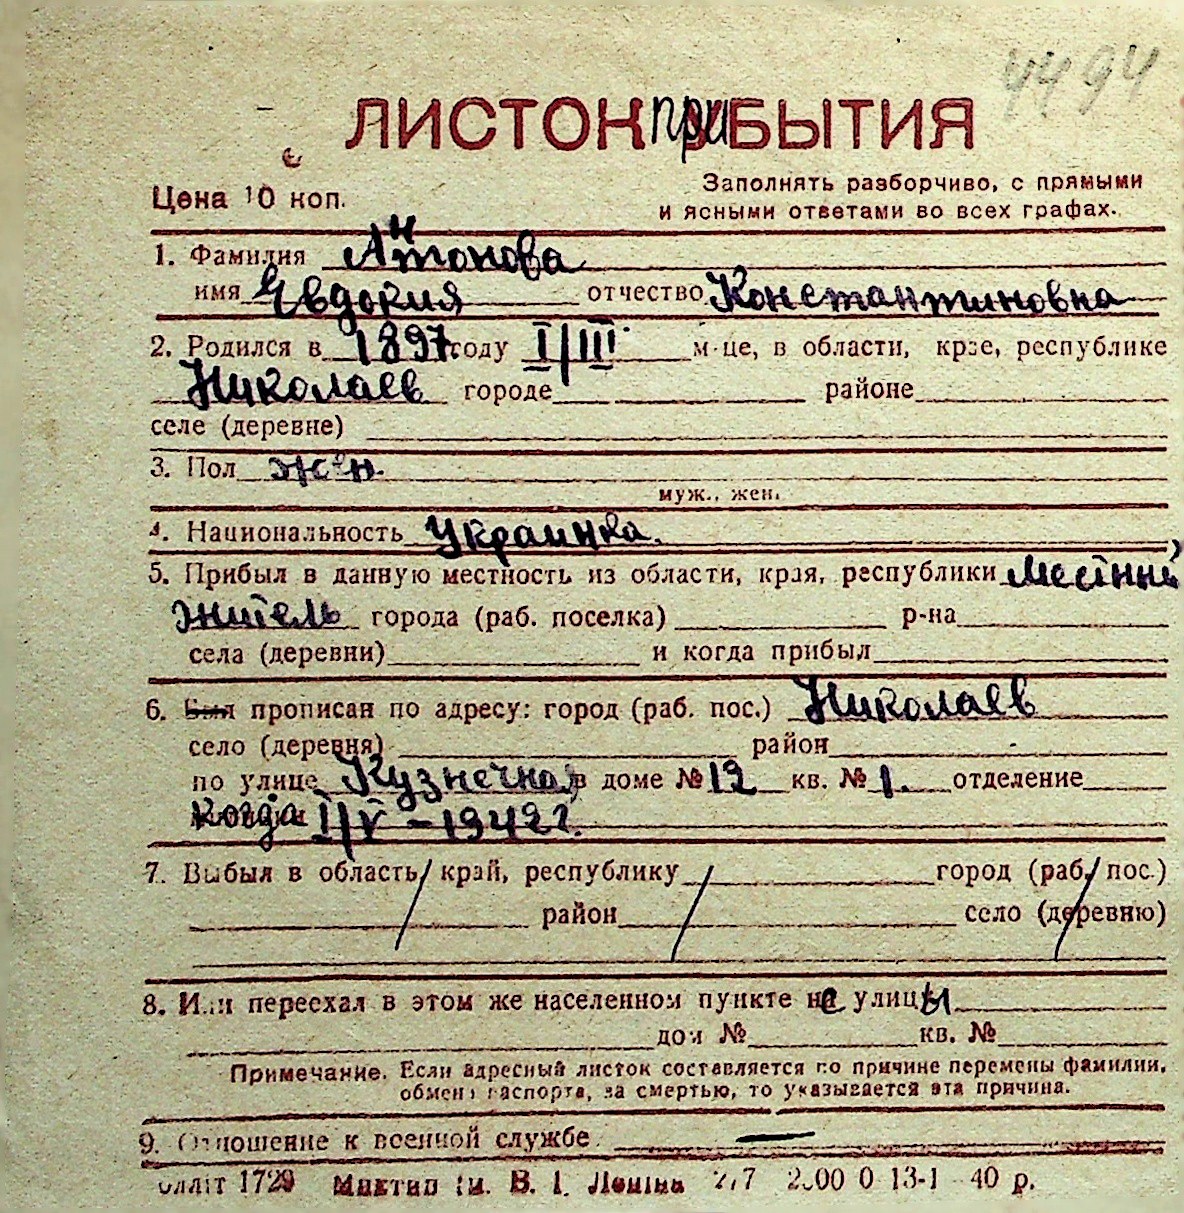 4494
ЛИСТОК прибЫТИЯ
Цена 10 коп.
Заполнять разборчиво, с прямыми
и ясными ответами во всех графах.
1. Фамилия Антонова
имя Евдокия отчество Константиновна
2. Родился в 1897 году I/III м-це, в области, крае, республике
Николаев городе районе
селе (деревне)
3. Пол жен.
муж., жен.
4. Национальность Украинка.
5. Прибыл в данную местность из области, края, республики Местный
житель города (раб. поселка) р-на
села (деревни) и когда прибыл
6. Был прописан по адресу: город (раб. пос.) Николаев
село (деревня) район
по улице Кузнечная в доме № 12 кв. № 1. отделение
когда I/V – 1942 г.
7. Выбыл в область, край, республику город (раб. пос.)
район село (деревню)
8. Или переехал в этом же населенном пункте не улицы
дом № кв. №
Примечание. Если адресный листок составляется по причине перемены фамилии,
обмена паспорта, за смертью, то указывается эта причина.
9. Отношение к военной службе —
1729 им. В. І. Леніна 13-1 40 р.